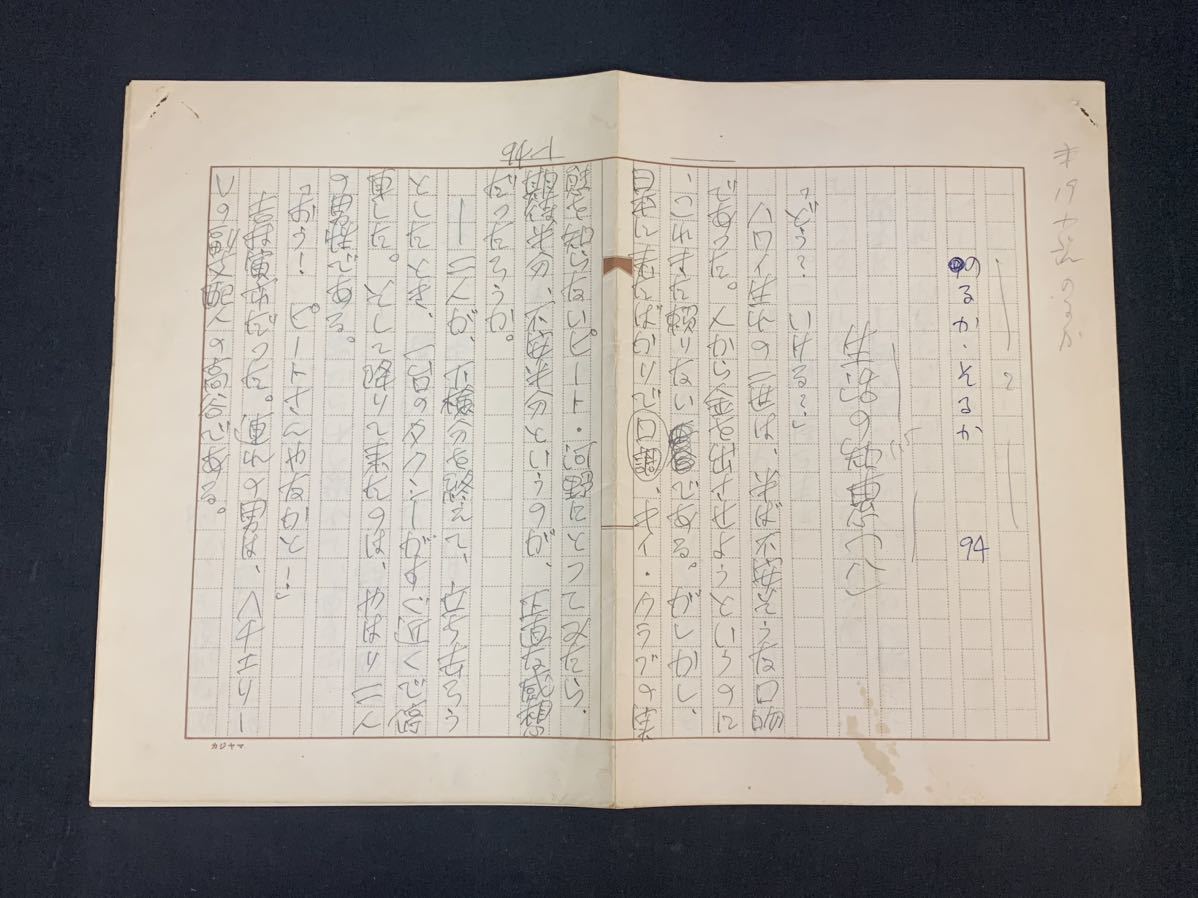 のるか・そるか 94
生活の知恵(八)
「どう? いける?」
ハワイ生れの二世は、半ば不安そうな口吻
であった。人から金を出させようというのに
、これまた頼りない である。がしかし、
日本に来たばかりで口調、キイ・クラブの実
態を知らないピート・河野にとってみたら、
期待半分、不安半分というのが、正直な感想
だったろうか。
――二人が、下検分を終えて、立ち去ろう
としたとき、一台のタクシーがすぐ近くで停
車した。そして降りて来たのは、やはり二人
の男性である。
「おう! ピートさんやなかと!」
吉村寅市だった。連れの男は、〈チェリー
〉の副支配人の高谷である。
カジヤマ